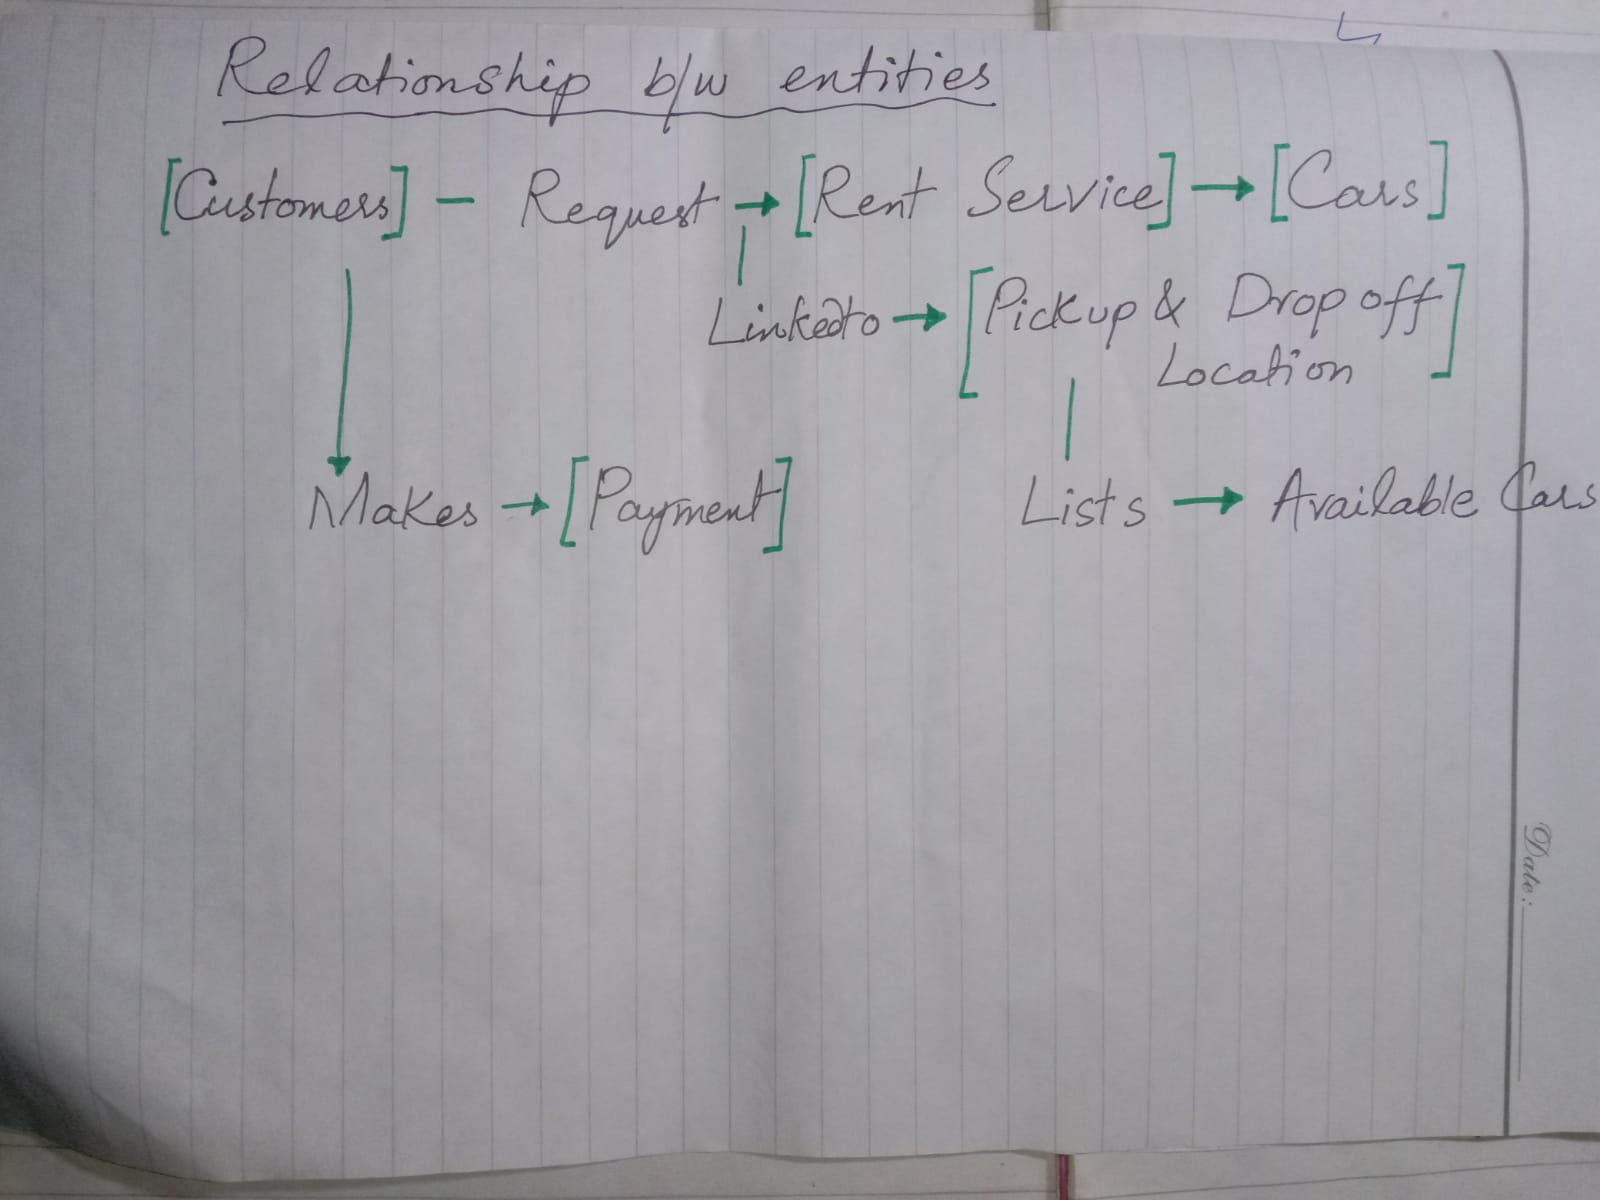 Relationship b/w entities
[Customers] — Request → [Rent Service] → [Cars]
Linkedto → [Pickup & Drop off
Location]
Makes → [Payment]
Lists → Available Cars
Date: